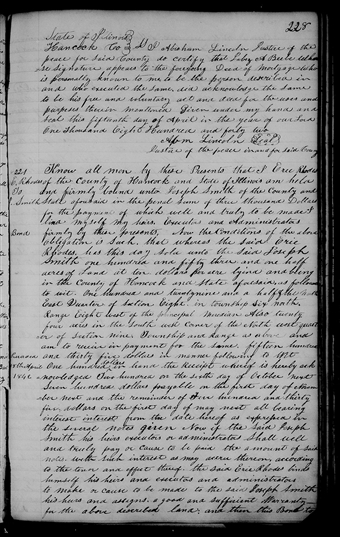 228
State of Illinois
Hancock Co I Abraham Lincoln Justice of the
peace for said County do certify that
signature appears to the foregoing Deed of Mortgage who
is personally known to me to be the person described in
and who executed the same, and acknowledge the same
to be his free and voluntary act and deed for the uses and
purposes therein mentioned Given under my hand and
seal this fifteenth day of April in the year of our Lord
One thousand Eight Hundred and forty two
Abm Lincoln Seal
Justice of the peace in and for said County
Know all men by these Presents that I Eric Rhodes
of the County of Hancock and State of Illinois am held
and firmly bound unto Joseph Smith of the County and
State aforesaid in the penal sum of three thousand Dollars
for the payment of which well and truly to be made I
bind myself my heirs Executors and Administrators
Bond
firmly by these presents, Now the Conditions of the above
obligation is such, that whereas the said Eric
Rhodes, has this day sold unto the said Joseph
Smith one hundred and fifty three and one half
acres of Land at ten dollars per acre lying and being
in the County of Hancock and State aforesaid, as follows
to wit. One hundred and and a half the
East Quarter of Section Eight, in township six north
Range Eight west of the principal Meridian Also twenty
four acres in the South west Corner of the North west quarter
of Section nine Township and range as above and
am to receive in payment for the same fifteen hundred
and thirty five dollars in manner following to wit
One hundred, in hand the Receipt whereof is hereby ack
nowledged One hundred on the sixth day of October next
Seven hundred dollars payable on the first day of Novem
ber next and the remainder of Six hundred and thirty
five dollars on the first day of may next all bearing
interest from the date thereof as expressed in
the several notes given Now if the Said Joseph
Smith his heirs executors or administrators shall well
and truly pay or Cause to be paid the amount of said
notes with such interest as may accrue thereon according
to the tenor and effect thereof. The said Eric Rhodes binds
himself his heirs and executors and administrators
to make or cause to be made to the said Joseph Smith
his heirs and assigns a good and sufficient Warranty
for the above described land, and then this Bond to